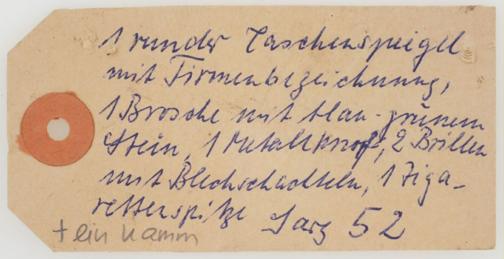 1 runder Taschenspiegel
mit Firmenbezeichnung,
1 Brosche mit blau-grünem
Stein, 1 Metallknopf, 2 Brillen
mit Blechschachteln, 1 Ziga-
rettenspitze Sarg 52
+ ein Kamm